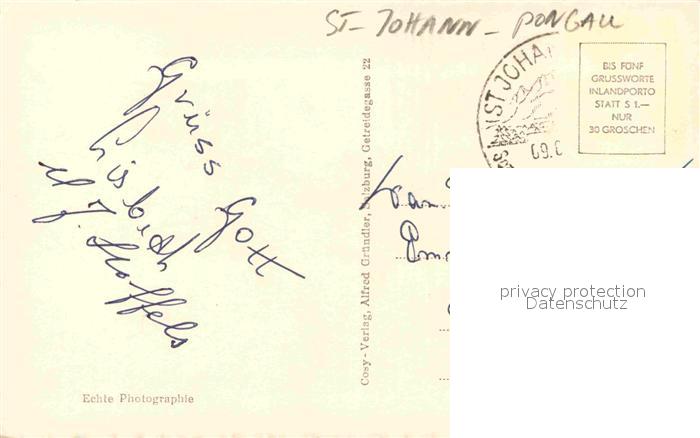 ST-JOHANN-PONGAU
BIS FÜNF
GRUSSWORTE
INLANDPORTO
STATT S 1.—
NUR
30 GROSCHEN
ST JOHA
09.
Grüss Gott
Cosy-Verlag, Alfred Gründler, Salzburg, Getreidegasse 22
privacy protection
Datenschutz
Echte Photographie